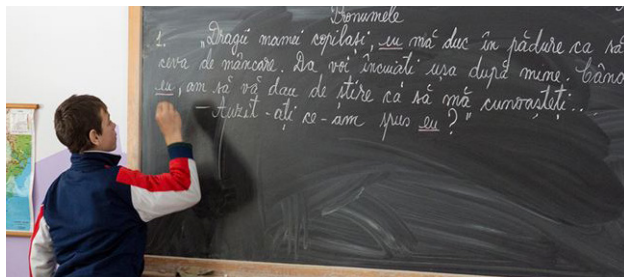 Pronumele
1. „Dragii mamei copilași, eu mă duc în pădure ca să
ceva de mâncare. Da voi încuiați ușa după mine. Când
eu, am să vă dau de știre ca să mă cunoașteți...
— Auzit-ați ce-am spus eu?"